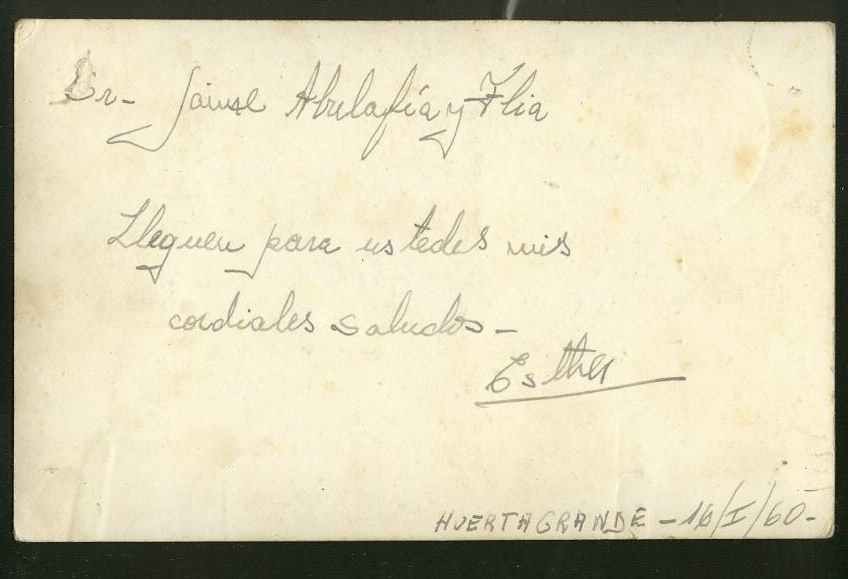 Sr- Jaime Abulafía y Flia
Lleguen para ustedes mis
cordiales saludos-
Esther
HUERTA GRANDE - 16/I/60-